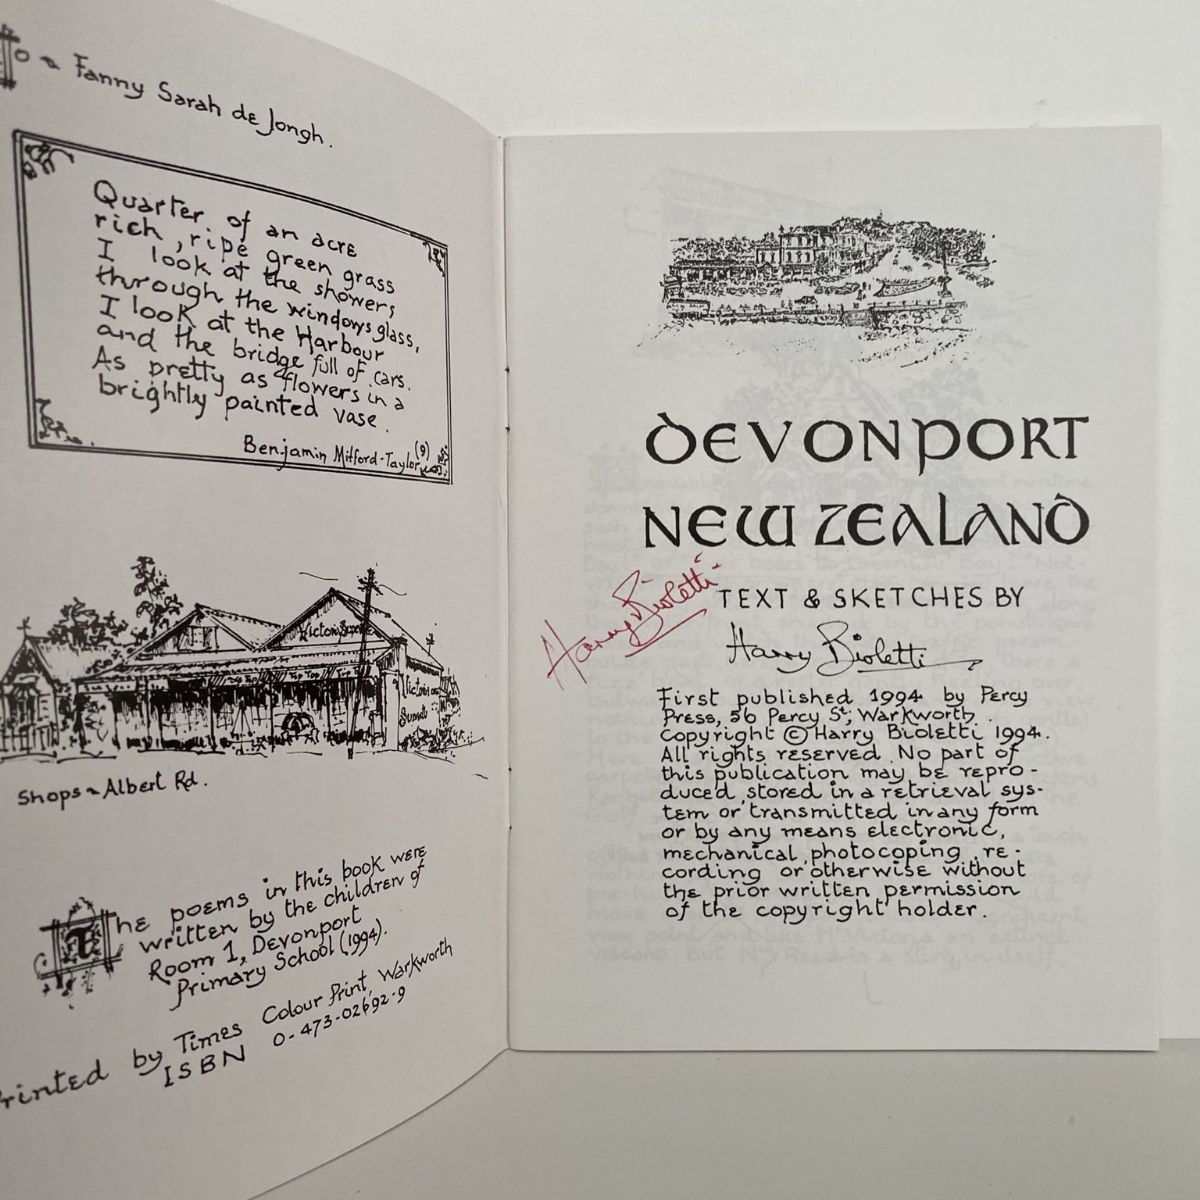 To ~ Fanny Sarah de Jongh.
Quarter of an acre
rich, ripe green grass
I look at the showers
through the windows glass,
I look at the Harbour
and the bridge full of cars.
As pretty as flowers in a
brightly painted vase.
Benjamin Mitford-Taylor (9)
Shops ~ Albert Rd.
The poems in this book were
written by the children of
Room 1, Devonport
Primary School (1994).
Printed by Times Colour Print, Warkworth
ISBN 0-473-02692-9
DEVONPORT
NEW ZEALAND
Harry Bioletti
TEXT & SKETCHES BY
Harry Bioletti
First published 1994 by Percy
Press, 56 Percy St, Warkworth.
Copyright © Harry Bioletti 1994.
All rights reserved. No part of
this publication may be repro-
duced, stored in a retrieval sys-
tem or transmitted in any form
or by any means electronic,
mechanical, photocoping, re-
cording or otherwise without
the prior written permission
of the copyright holder.